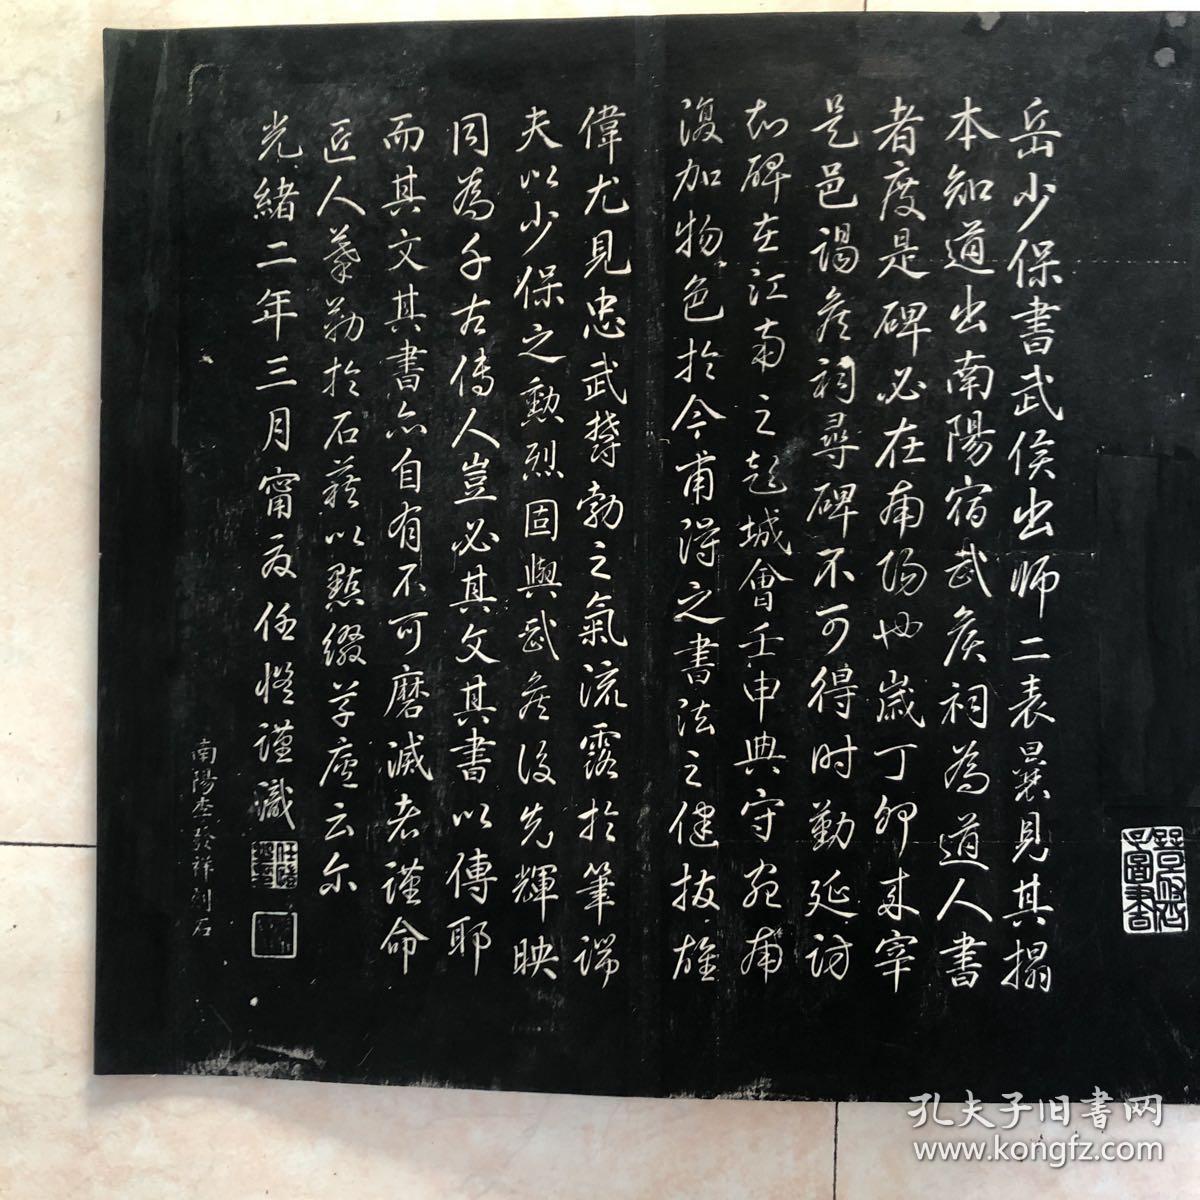 岳少保書武侯出师二表曩見其搨
本知道出南陽宿武侯祠為道人書
者度是碑必在南陽也歲丁卯來宰
是邑謁侯祠尋碑不可得时勤延访
知碑在江南之彭城會壬申典守宛南
復加物色於今甫得之書法之健拔雄
偉尤見忠武欝勃之氣流露於筆端
夫以少保之勲烈固與武侯後先輝映
同為千古傳人豈必其文其書以傳耶
而其文其書亦自有不可磨滅者謹命
匠人摹勒於石藉以點綴草廬云尔
光緒二年三月甯夏任愷謹識
南陽李發祥刻石
孔夫子旧書网
www.kongfz.com